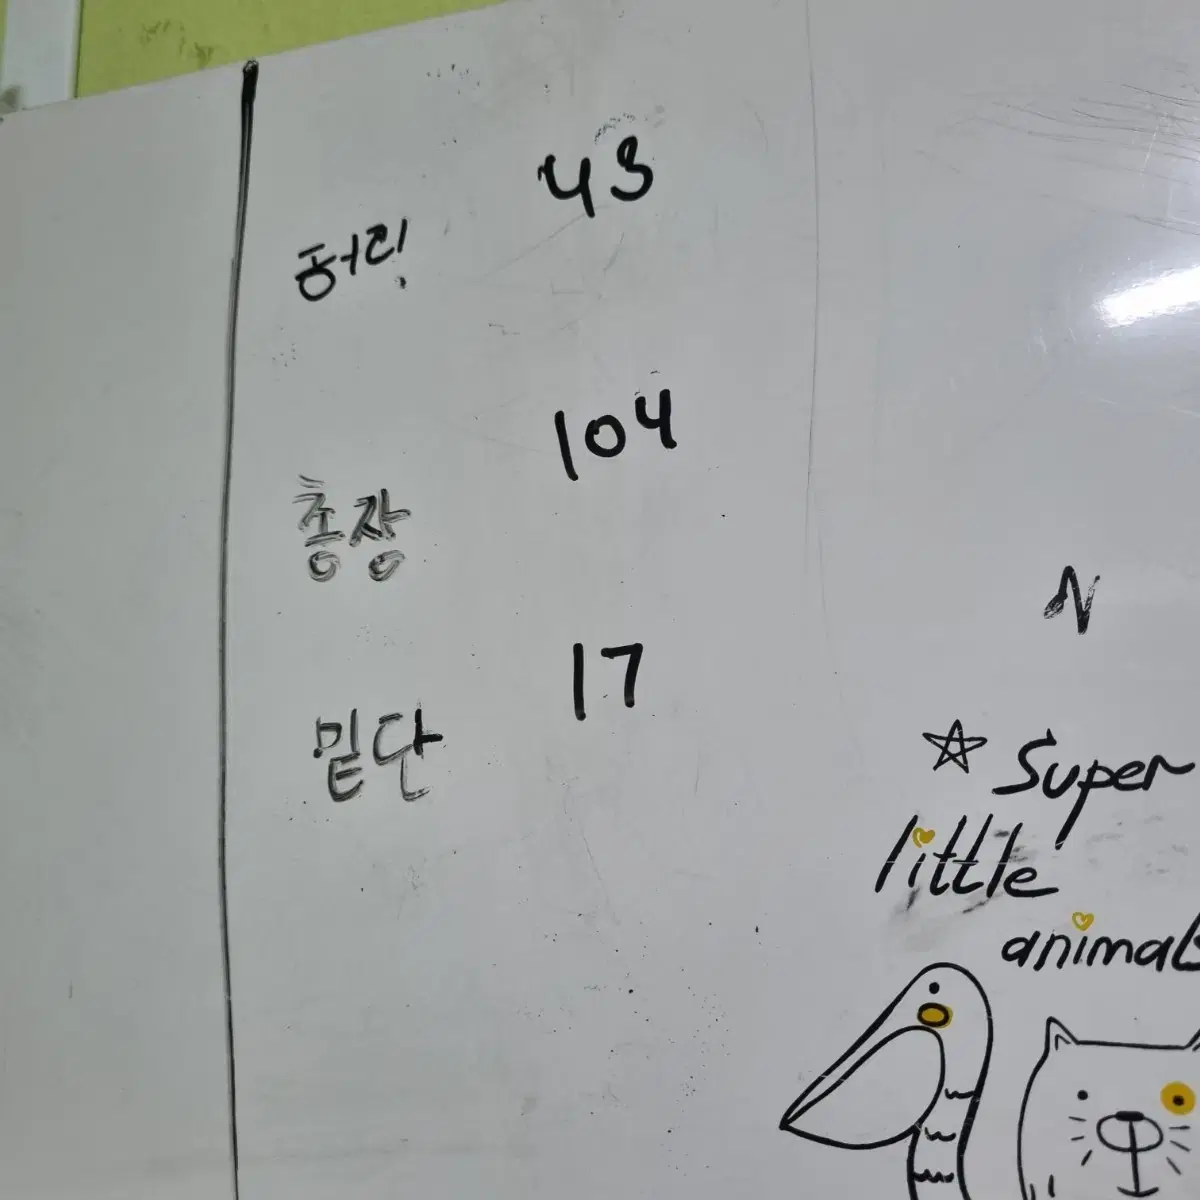 43
허리
104
총장
17
밑단
N
☆ Super
little
animals